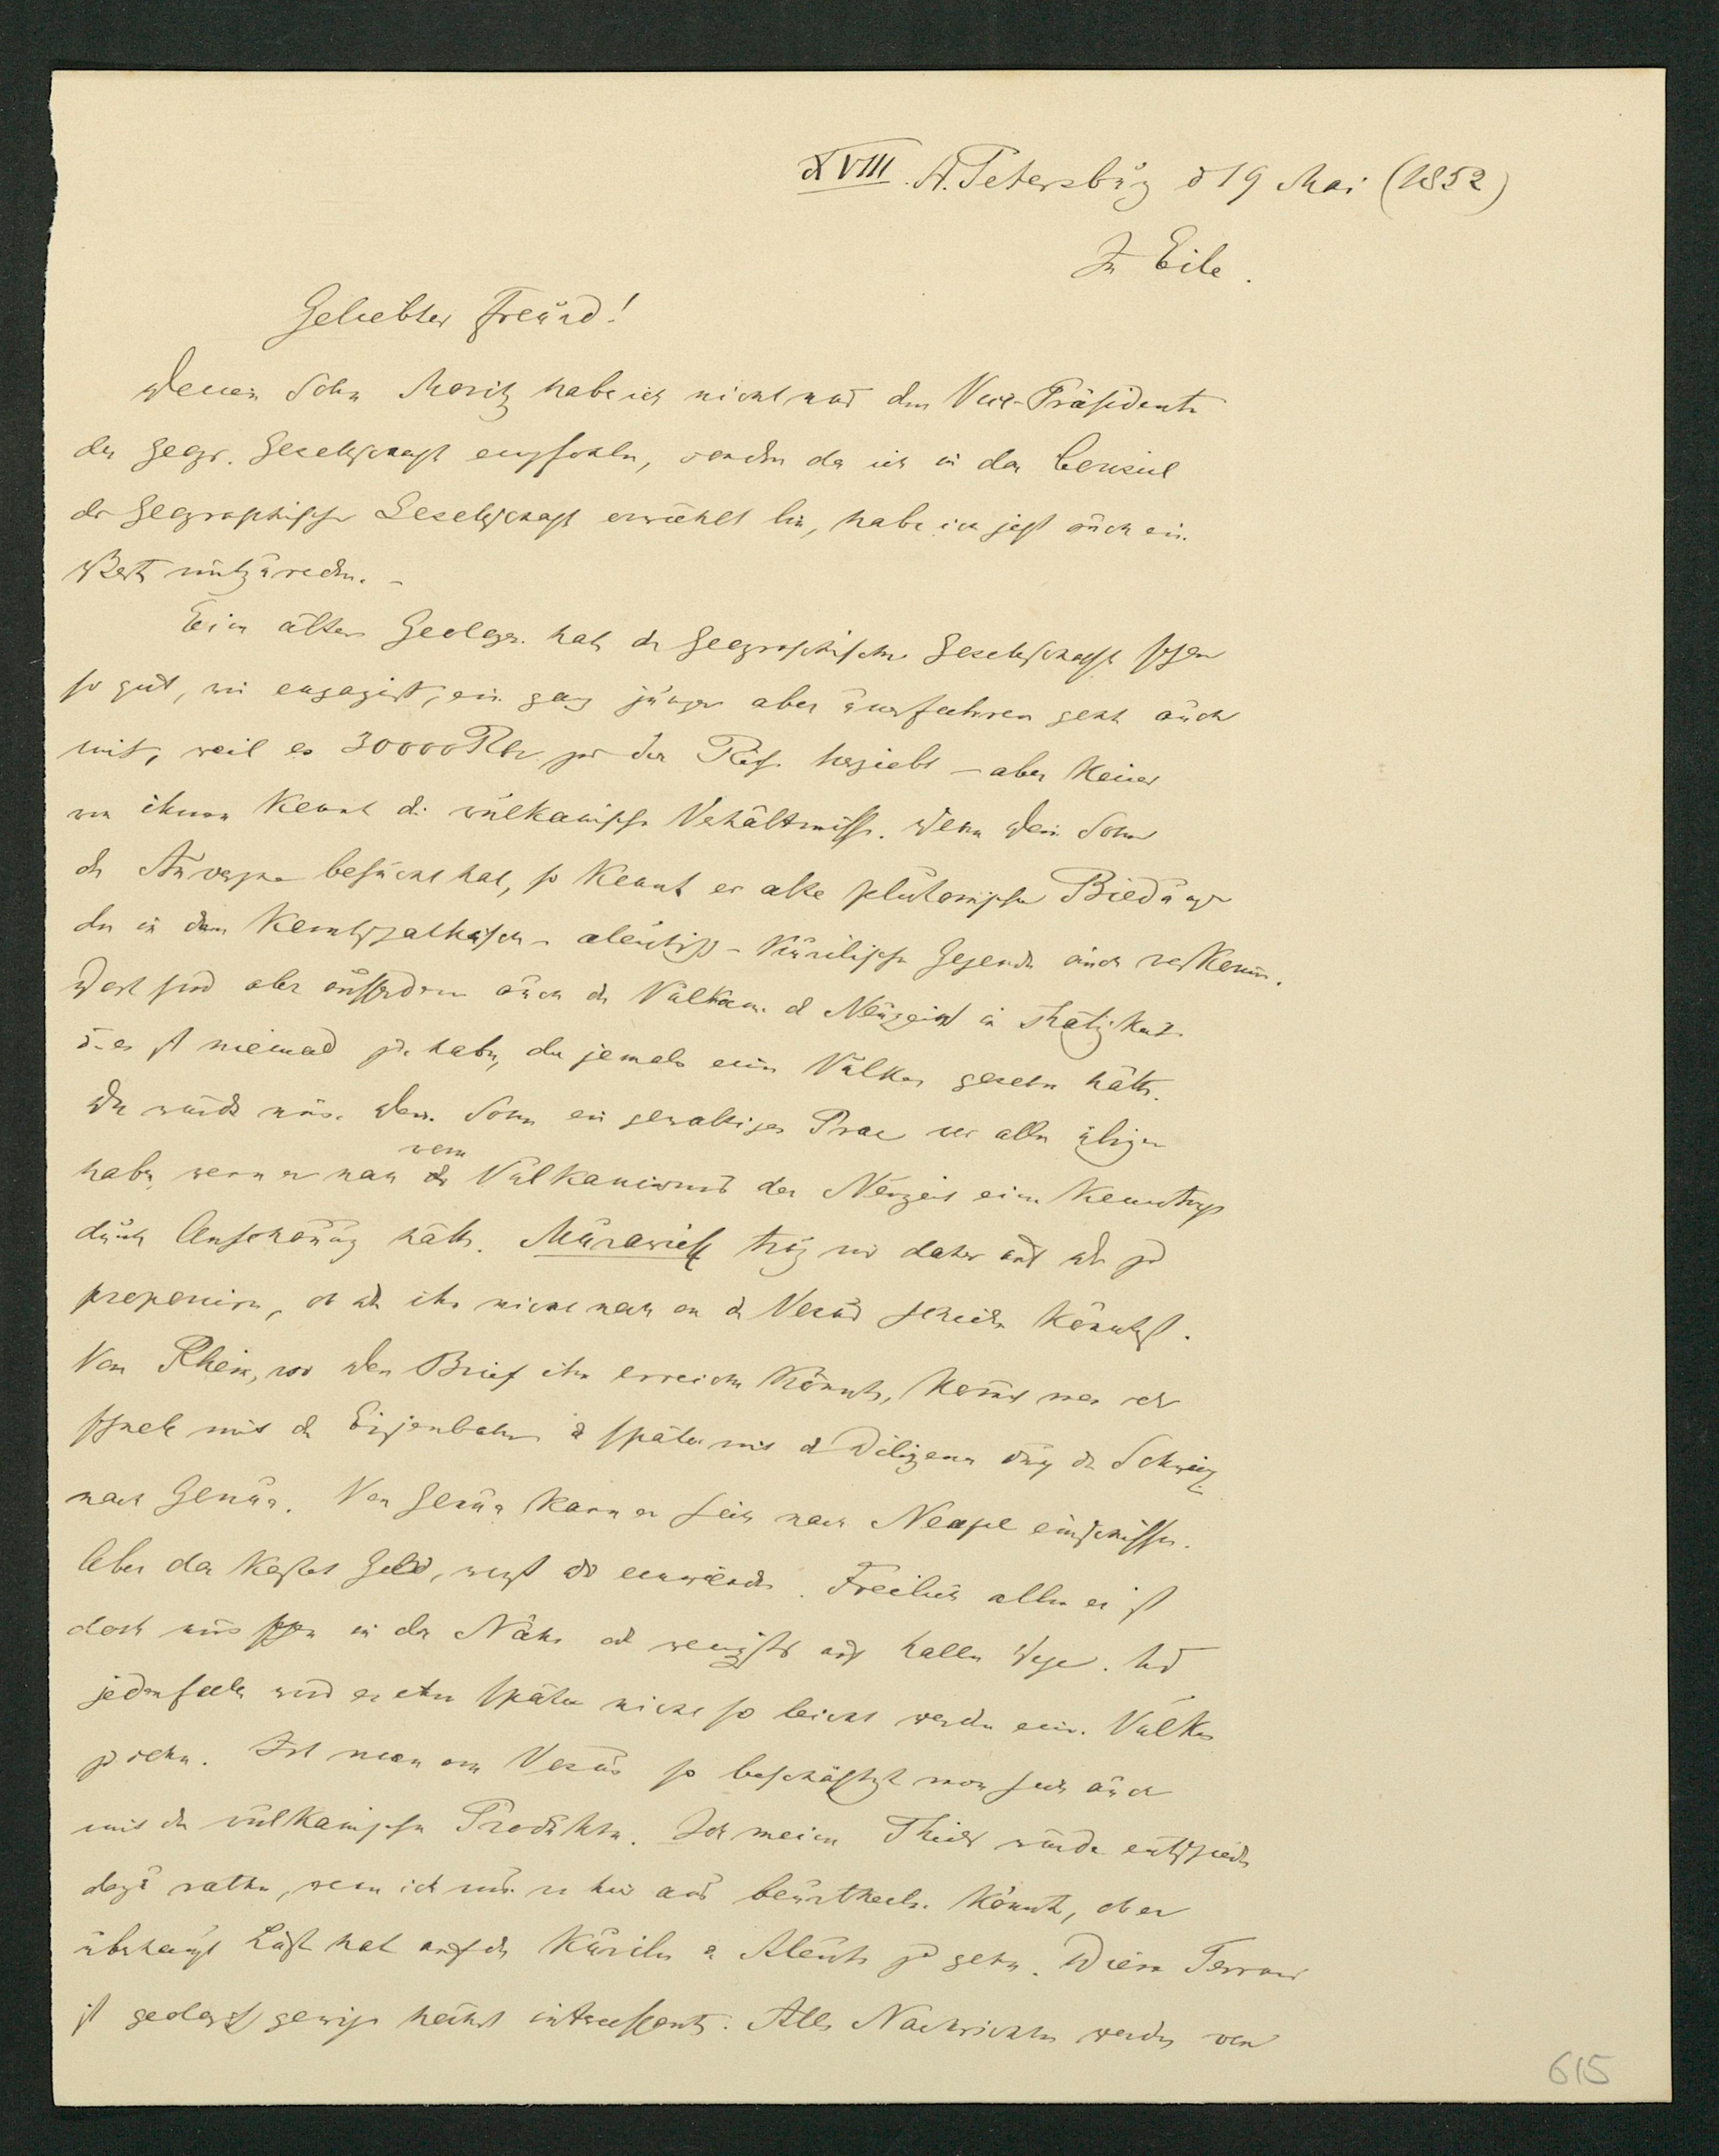 XVIII. St. Petersburg d 19 Mai (1852)
In Eile.
Geliebter Freund!
Deinen Sohn Moritz habe ich nicht nur dem Vice-Präsidenten
der Geogr. Gesellschaft empfohlen, sondern da ich in das Conseil
der Geographischen Gesellschaft erwählt bin, habe ich jetzt auch ein
Wort mitzureden. –
Ein älterer Geologe hat der Geographischen Gesellschaft schon
so gut, wie engagirt, ein ganz junger aber unerfahrener geht auch
mit, weil er 30000 Rbl zu der Reise hergiebt – aber Keiner
von ihnen kennt die vulkanischen Verhältnisse. Wenn Dein Sohn
die Auvergne besucht hat, so kennt er alte plutonische
die in den Kamtschatkaisch - aleutisch - Kurilischen Gegenden auch
Dort sind aber außerdem auch die Vulkane d Neuzeit in Thätigkeit
u. es ist niemand zu haben, der jemals einen Vulkan gesehn hätte.
Da würde nun Dein Sohn ein gewaltiges Prae vor allen übrigen
haben, wenn er nun vom Vulkanismus der Neuzeit eine Kenntniß
durch Anschauung hätte. Murawieff trug mir daher auf Dir zu
proponiren, ob Du ihn nicht noch an d Vesuv schicken könntest.
Vom Rhein, wo Dein Brief ihn erreichen könnte, kommt man sehr
schnell mit der Eisenbahn u später mit d Diligence durch die Schweiz
nach Genua. Von Genua kann er sich nach Neapel einschiffen.
Aber das kostet Geld, wirst Du einwenden. Freilich allein er ist
doch nun schon in der Nähe od wenigstens auf halbem Wege. Und
jedenfalls wird es ihm später nicht so leicht werden einen Vulkan
zu sehn. Ist man am Vesuv so beschäftigt man sich auch
mit den vulkanischen Produkten. Ich meines Theils würde entschieden
dazu rathen, wenn ich nur von hier aus beurtheilen könnte, ob er
überhaupt Lust hat auf die Kurilen u Aleuten zu gehn. Dieses Terrain
ist geologisch gewiss höchst interessant. Alle Nachrichten werden von
615